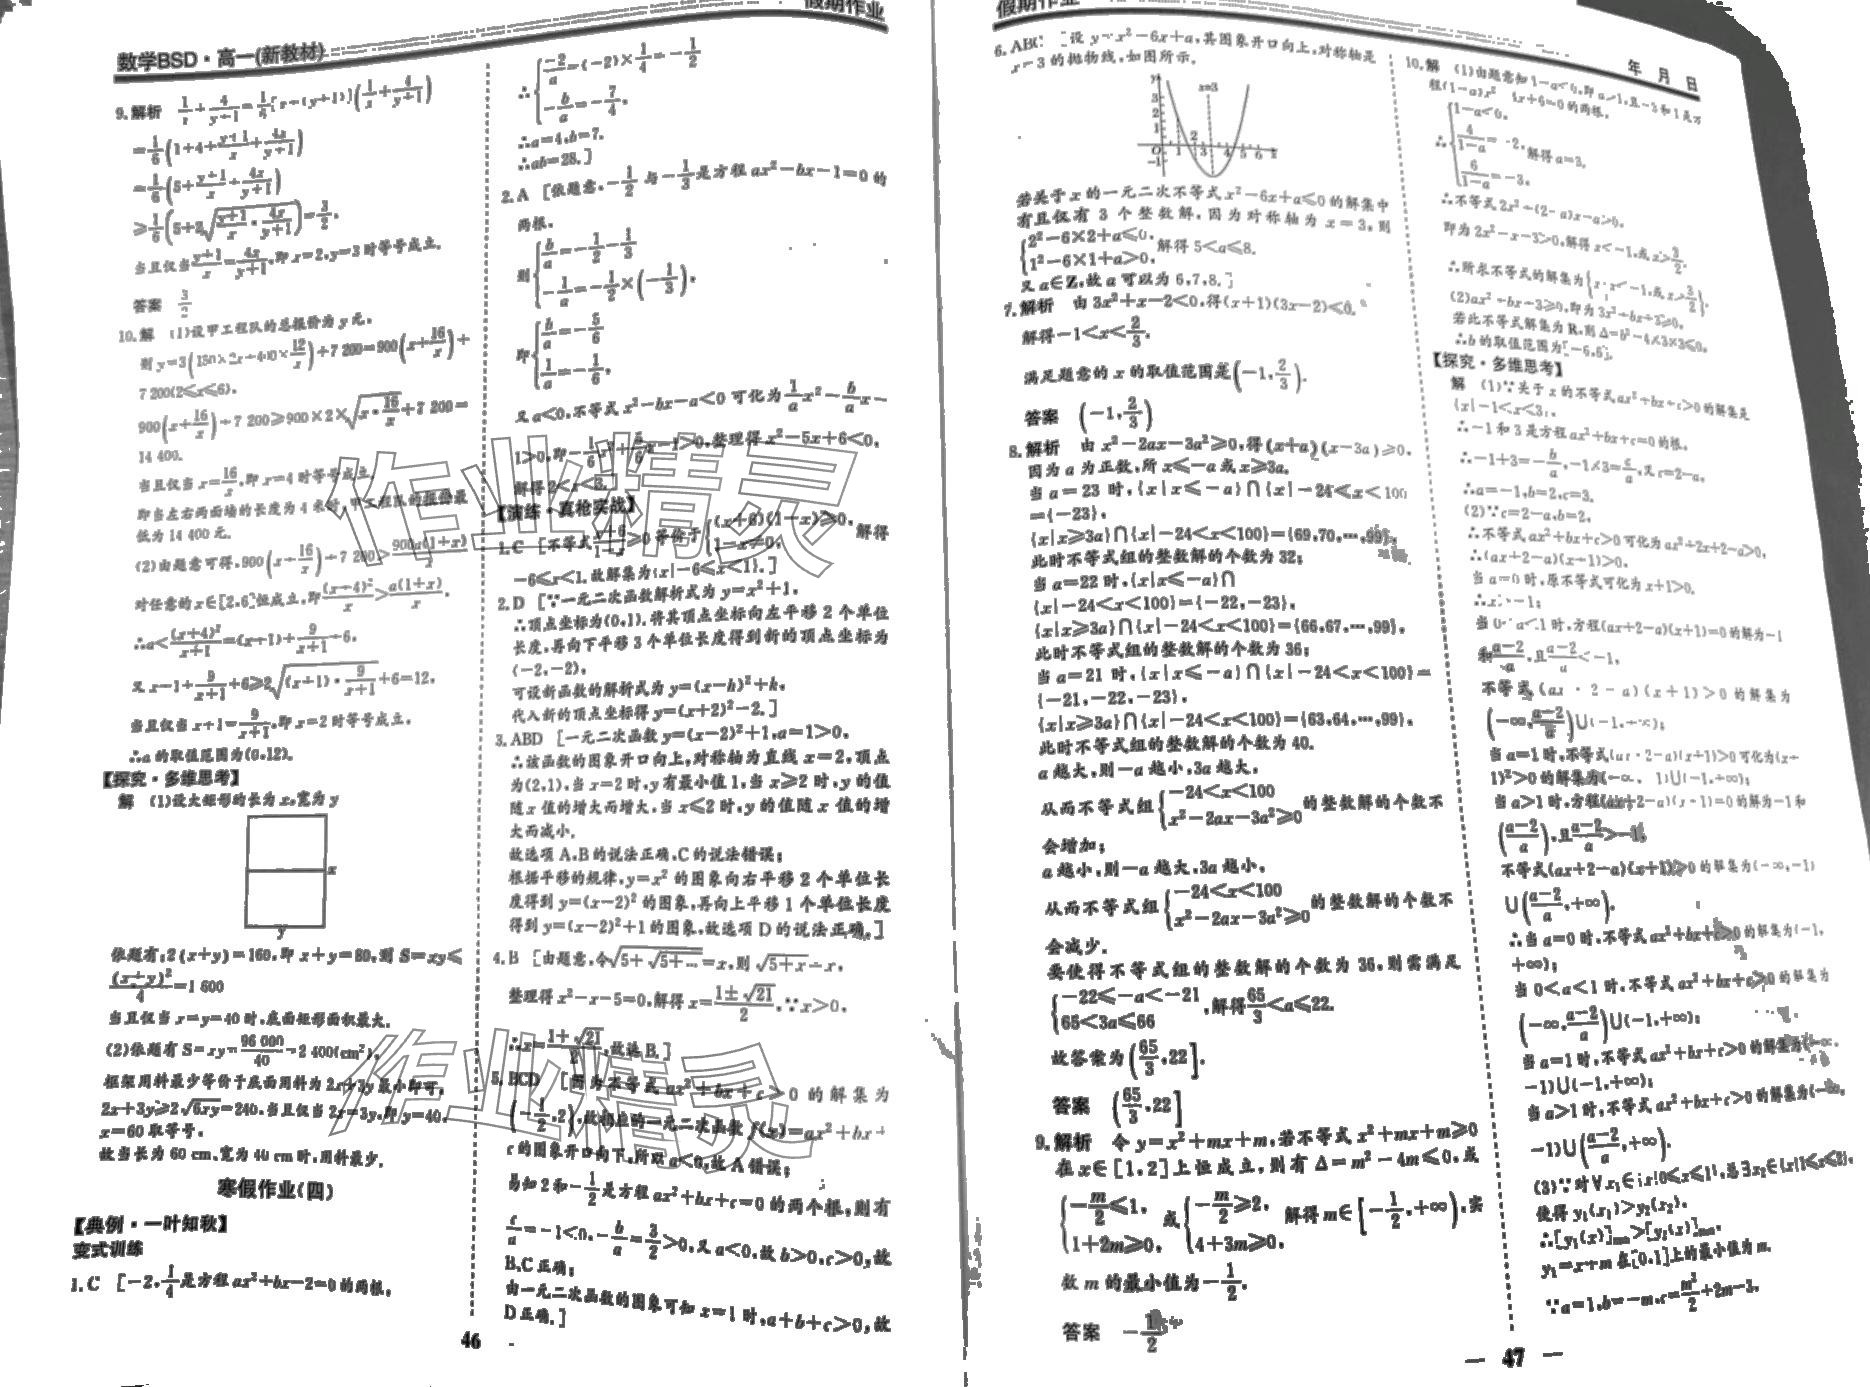 数学BSD·高一(新教材)
假期作业
9.解析 1/x+4/(y+1)=1/6[x+(y+1)](1/x+4/(y+1))
=1/6(1+4+(y+1)/x+4x/(y+1))
=1/6(5+(y+1)/x+4x/(y+1))
≥1/6(5+2√((y+1)/x·4x/(y+1)))=3/2,
当且仅当(y+1)/x=4x/(y+1),即x=2,y=3时等号成立.
答案 3/2
10.解 (1)设甲工程队的总报价为y元,
则y=3(150×2x+400×12/x)+7 200=900(x+16/x)+
7 200(2≤x≤6),
900(x+16/x)+7 200≥900×2×√(x·16/x)+7 200=
14 400,
当且仅当x=16/x,即x=4时等号成立,
即当左右两面墙的长度为4米时,甲工程队的报价最
低为14 400元.
(2)由题意可得,900(x+16/x)+7 200>900a(1+x)/x
对任意的x∈[2,6]恒成立,即(x+4)²/x>a(1+x)/x,
∴a<(x+4)²/(x+1)=(x+1)+9/(x+1)+6,
又x+1+9/(x+1)+6≥2√((x+1)·9/(x+1))+6=12,
当且仅当x+1=9/(x+1),即x=2时等号成立,
∴a的取值范围为(0,12).
【探究·多维思考】
解 (1)设大矩形的长为x,宽为y
x
y
依题有:2(x+y)=160,即x+y=80,则S=xy≤
(x+y)²/4=1 600
当且仅当x=y=40时,底面矩形面积最大.
(2)依题有S=xy=96 000/40=2 400(cm²),
框架用料最少等价于底面用料为2x+3y最小即可,
2x+3y≥2√6xy=240,当且仅当2x=3y,即y=40,
x=60取等号,
故当长为60 cm、宽为40 cm时,用料最少.
寒假作业(四)
【典例·一叶知秋】
变式训练
1.C [-2,1/4是方程ax²+bx-2=0的两根,
∴{-2/a=(-2)×1/4=-1/2
-b/a=-7/4,
∴a=4,b=7,
∴ab=28.]
2.A [依题意,-1/2与-1/3是方程ax²-bx-1=0的
两根,
则{b/a=-1/2-1/3
-1/a=-1/2×(-1/3),
即{b/a=-5/6
1/a=-1/6,
又a<0,不等式x²-bx-a<0可化为1/a x²-b/a x-
1>0,即-1/6x²+5/6x-1>0,整理得x²-5x+6<0,
解得2<x<3.
【演练·真枪实战】
1.C [不等式(x+6)/(1-x)≥0等价于{(x+6)(1-x)≥0,
1-x≠0, 解得
-6≤x<1.故解集为{x|-6≤x<1}.]
2.D [∵一元二次函数解析式为y=x²+1,
∴顶点坐标为(0,1),将其顶点坐标向左平移2个单位
长度,再向下平移3个单位长度得到新的顶点坐标为
(-2,-2),
可设新函数的解析式为y=(x-h)²+k,
代入新的顶点坐标得y=(x+2)²-2.]
3.ABD [一元二次函数y=(x-2)²+1,a=1>0,
∴该函数的图象开口向上,对称轴为直线x=2,顶点
为(2,1),当x=2时,y有最小值1,当x≥2时,y的值
随x值的增大而增大,当x≤2时,y的值随x值的增
大而减小,
故选项A,B的说法正确,C的说法错误;
根据平移的规律,y=x²的图象向右平移2个单位长
度得到y=(x-2)²的图象,再向上平移1个单位长度
得到y=(x-2)²+1的图象,故选项D的说法正确.]
4.B [由题意,令√(5+√(5+…))=x,则√(5+x)=x,
整理得x²-x-5=0,解得x=(1±√21)/2,∵x>0,
∴x=(1+√21)/2,故选B.]
5.BCD [因为不等式ax²+bx+c>0的解集为
(-1/2,2),故相应的一元二次函数f(x)=ax²+bx+
c的图象开口向下,所以a<0,故A错误;
易知2和-1/2是方程ax²+bx+c=0的两个根,则有
c/a=-1<0,-b/a=3/2>0,又a<0,故b>0,c>0,故
B,C正确;
由一元二次函数的图象可知x=1时,a+b+c>0,故
D正确.]
46
作业精灵
作业精灵
假期作业
年 月 日
6.ABC [设y=x²-6x+a,其图象开口向上,对称轴是
x=3的抛物线,如图所示,
y x=3
3 2 1 O -1 1 2 3 4 5 6 x
若关于x的一元二次不等式x²-6x+a≤0的解集中
有且仅有3个整数解,因为对称轴为x=3,则
{2²-6×2+a≤0,
1²-6×1+a>0, 解得5<a≤8,
又a∈Z,故a可以为6,7,8.]
7.解析 由3x²+x-2<0,得(x+1)(3x-2)<0,
解得-1<x<2/3,
满足题意的x的取值范围是(-1,2/3).
答案 (-1,2/3)
8.解析 由x²-2ax-3a²≥0,得(x+a)(x-3a)≥0,
因为a为正数,所x≤-a或x≥3a.
当a=23时,{x|x≤-a}∩{x|-24<x<100
={-23},
{x|x≥3a}∩{x|-24<x<100}={69,70,…,99},
此时不等式组的整数解的个数为32;
当a=22时,{x|x≤-a}∩
{x|-24<x<100}={-22,-23},
{x|x≥3a}∩{x|-24<x<100}={66,67,…,99},
此时不等式组的整数解的个数为36;
当a=21时,{x|x≤-a}∩{x|-24<x<100}=
{-21,-22,-23},
{x|x≥3a}∩{x|-24<x<100}={63,64,…,99},
此时不等式组的整数解的个数为40.
a越大,则-a越小,3a越大,
从而不等式组{-24<x<100
x²-2ax-3a²≥0的整数解的个数不
会增加;
a越小,则-a越大,3a越小,
从而不等式组{-24<x<100
x²-2ax-3a²≥0的整数解的个数不
会减少.
要使得不等式组的整数解的个数为36,则需满足
{-22≤-a<-21
65<3a≤66 ,解得65/3<a≤22.
故答案为(65/3,22].
答案 (65/3,22]
9.解析 令y=x²+mx+m,若不等式x²+mx+m≥0
在x∈[1,2]上恒成立,则有Δ=m²-4m≤0,或
{-m/2≤1,
1+2m≥0, 或{-m/2≥2,
4+3m≥0, 解得m∈[-1/2,+∞),实
数m的最小值为-1/2.
答案 -1/2
10.解 (1)由题意知1-a<0,即a>1,且-3和1是方
程(1-a)x²-4x+6=0的两根,
∴{1-a<0,
4/(1-a)=-2, 解得a=3,
6/(1-a)=-3,
∴不等式2x²+(2-a)x-a>0,
即为2x²-x-3>0,解得x<-1,或x>3/2,
∴所求不等式的解集为{x|x<-1,或x>3/2}.
(2)ax²+bx+3≥0,即为3x²+bx+3≥0,
若此不等式解集为R,则Δ=b²-4×3×3≤0,
∴b的取值范围为[-6,6].
【探究·多维思考】
解 (1)∵关于x的不等式ax²+bx+c>0的解集是
{x|-1<x<3},
∴-1和3是方程ax²+bx+c=0的根,
∴-1+3=-b/a,-1×3=c/a,又c=2-a,
∴a=-1,b=2,c=3.
(2)∵c=2-a,b=2,
∴不等式ax²+bx+c>0可化为ax²+2x+2-a>0,
∴(ax+2-a)(x+1)>0,
当a=0时,原不等式可化为x+1>0,
∴x>-1;
当0<a<1时,方程(ax+2-a)(x+1)=0的解为-1
和(a-2)/a,且(a-2)/a<-1,
不等式(ax+2-a)(x+1)>0的解集为
(-∞,(a-2)/a)∪(-1,+∞);
当a=1时,不等式(ax+2-a)(x+1)>0可化为(x+
1)²>0的解集为(-∞,-1)∪(-1,+∞);
当a>1时,方程(ax+2-a)(x+1)=0的解为-1和
((a-2)/a),且(a-2)/a>-1,
不等式(ax+2-a)(x+1)>0的解集为(-∞,-1)
∪((a-2)/a,+∞).
∴当a=0时,不等式ax²+bx+c>0的解集为(-1,
+∞);
当0<a<1时,不等式ax²+bx+c>0的解集为
(-∞,(a-2)/a)∪(-1,+∞);
当a=1时,不等式ax²+bx+c>0的解集为(-∞,
-1)∪(-1,+∞);
当a>1时,不等式ax²+bx+c>0的解集为(-∞,
-1)∪((a-2)/a,+∞).
(3)∵对∀x₁∈{x|0≤x≤1},总∃x₂∈{x|1≤x≤2},
使得y₁(x₁)>y₂(x₂),
∴[y₁(x)]min>[y₂(x)]min,
y₁=x+m在[0,1]上的最小值为m,
∵a=1,b=-m,c=m²/2+2m-3,
— 47 —